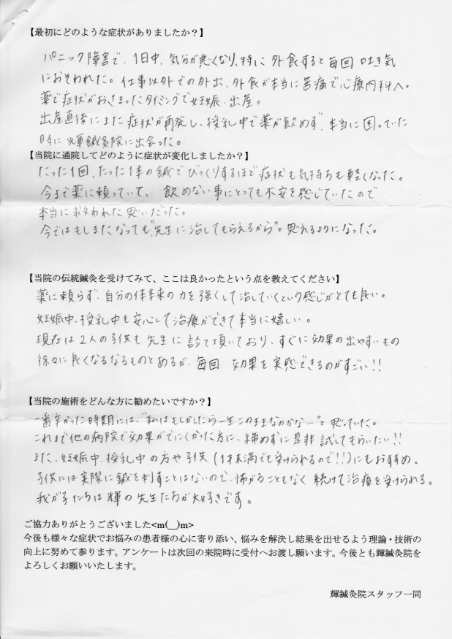 【最初にどのような症状がありましたか？】
パニック障害で、1日中、気分が悪くなり、特に外食すると毎回吐き気
におそわれた。仕事以外での外出、外食が本当に苦痛で心療内科へ。
薬で症状がおさまったタイミングで妊娠、出産。
出産直後にまた症状が再発し、授乳中で薬が飲めず、本当に困っていた
時に輝鍼灸院に出会った。
【当院に通院してどのように症状が変化しましたか？】
たった1回、たった1本の鍼でびっくりするほど症状も気持ちも軽くなった。
今まで薬に頼っていて、飲めない事にとっても不安を感じていたので
本当にすくわれた思いだった。
今ではもしまたなっても"先生に治してもらえるから"と思えるようになった。
【当院の伝統鍼灸を受けてみて、ここは良かったという点を教えてください】
薬に頼らず、自分の体本来の力を強くして治していくという感じがとても良い。
妊娠中、授乳中も安心して治療ができて本当に嬉しい。
現在は2人の子供も先生に診て頂いており、すぐに効果の出やすいもの
徐々に良くなるなるものとあるが、毎回効果を実感できるのがすごい!!
【当院の施術をどんな方に勧めたいですか？】
一番辛かった時期には、"私はもしかしたら一生このままなのかな…"と思っていた。
これまで他の病院で効果がでにくかった方に、諦めずに是非試してもらいたい!!
また、妊娠中、授乳中の方や子供(1才未満でも受けられるので!!)にもおすすめ。
子供には実際に鍼を刺すことはないので、怖がることもなく続けて治療を受けられる。
我が子たちは輝の先生たちが大好きです。
ご協力ありがとうございました<m(__)m>
今後も様々な症状でお悩みの患者様の心に寄り添い、悩みを解決し結果を出せるよう理論・技術の
向上に努めて参ります。アンケートは次回の来院時に受付へお渡し願います。今後とも輝鍼灸院を
よろしくお願いいたします。
輝鍼灸院スタッフ一同